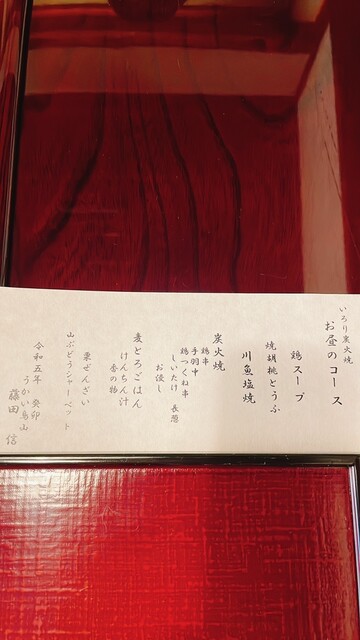 いろり炭火焼
お昼のコース
鶏スープ
焼胡桃とうふ
川魚塩焼
炭火焼
鶏串
手羽中
鶏つくね串
しいたけ 長葱
お浸し
麦とろごはん
けんちん汁
香の物
栗ぜんざい
山ぶどうシャーベット
令和五年 癸卯
うかい鳥山
藤田 信